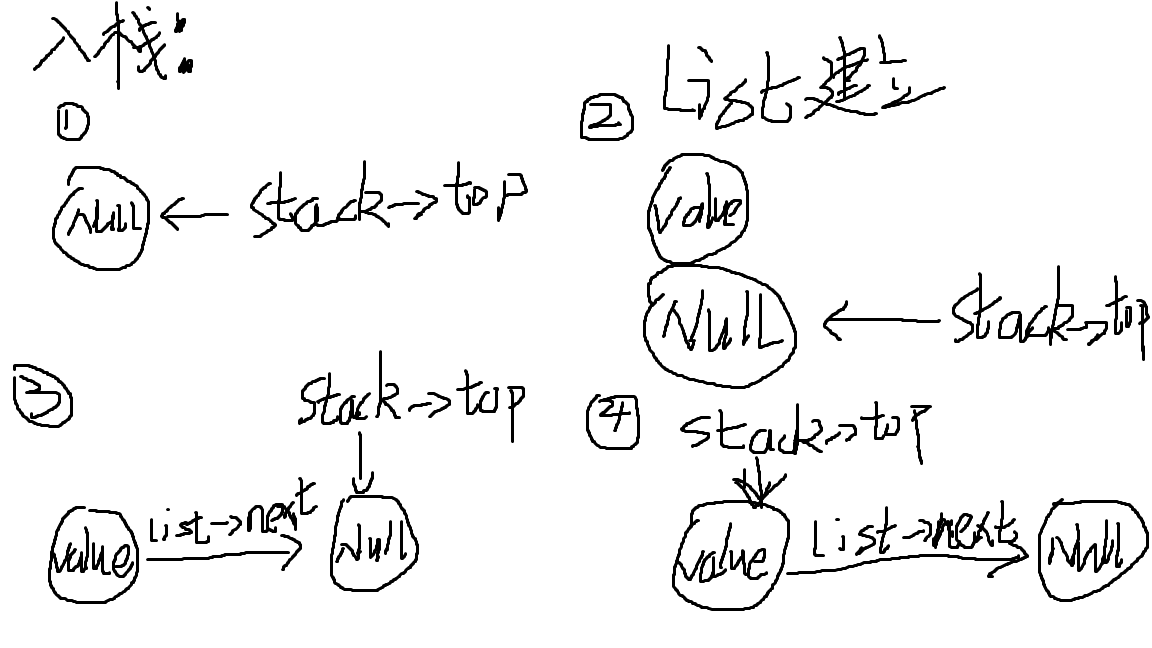 入栈:
①
Null ← stack→top
② List建立
value
Null ← stack→top
③
stack→top
value List→next Null
④
stack→top
value List→next Null